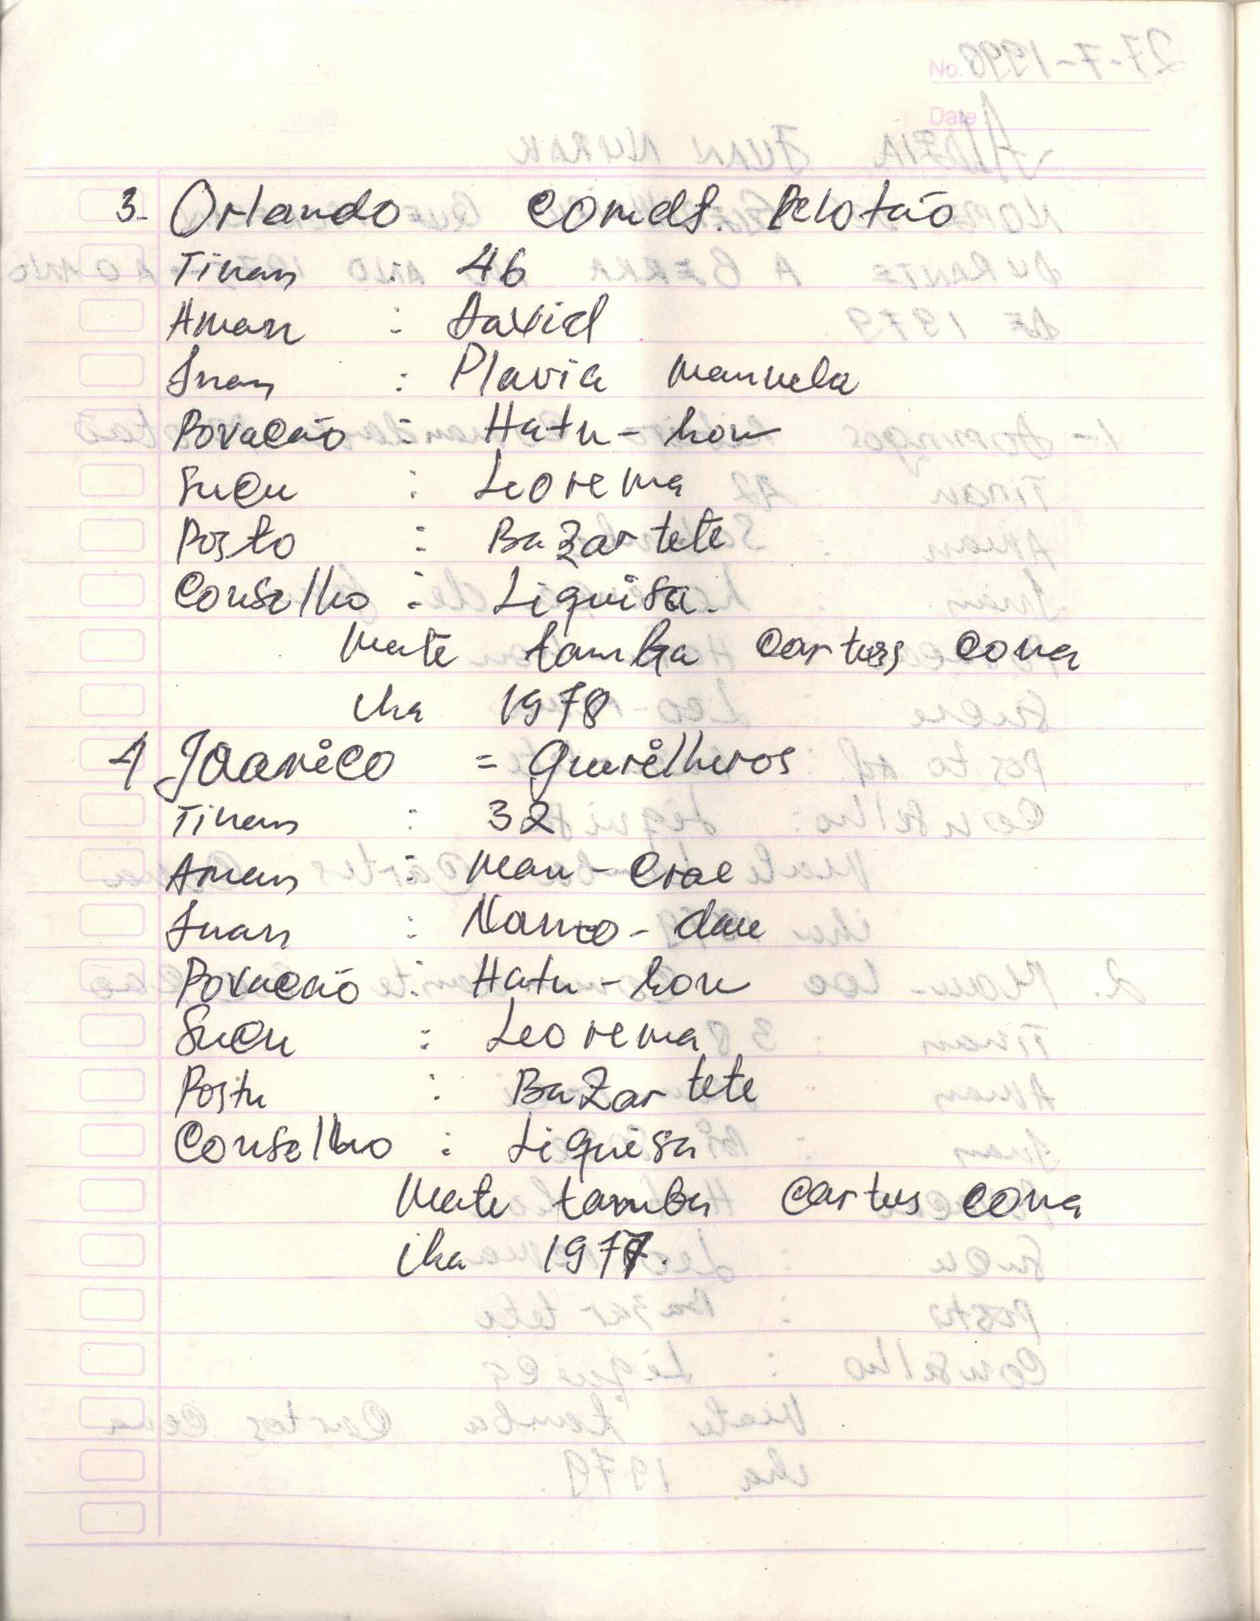 3- Orlando Comdt. Pelotão
Tinan : 46
Aman : David
Inan : Plavia Manuela
Povacão : Hatu-hou
Sucu : Leorema
Posto : Bazartete
Conselho : Liquisa.
Mate tamba Cartus cona
iha 1978
4 Jaanico = Guerilheros
Tinan : 32
Aman : Mau-Crae
Inan : - dau
Povacão : Hatu-hou
Sucu : Leorema
Postu : BaZartete
Conselho : Liquisa
Mate tamba Cartus cona
iha 1977.